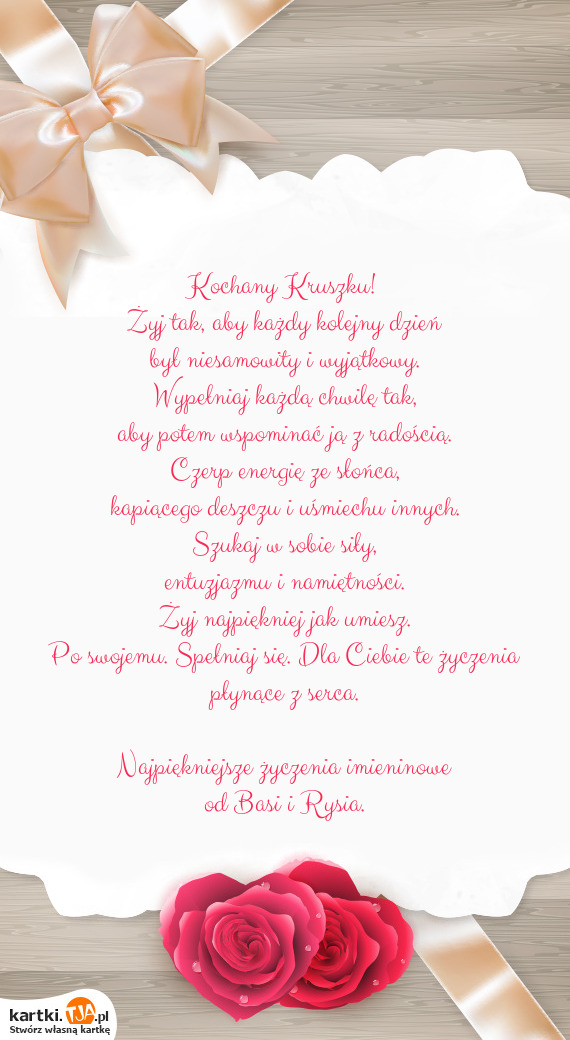 Kochany Kruszku!
Żyj tak, aby każdy kolejny dzień
był niesamowity i wyjątkowy.
Wypełniaj każdą chwilę tak,
aby potem wspominać ją z radością.
Czerp energię ze słońca,
kapiącego deszczu i uśmiechu innych.
Szukaj w sobie siły,
entuzjazmu i namiętności.
Żyj najpiękniej jak umiesz.
Po swojemu. Spełniaj się. Dla Ciebie te życzenia
płynące z serca.
Najpiękniejsze życzenia imieninowe
od Basi i Rysia.
kartki.TJA.pl
Stwórz własną kartkę